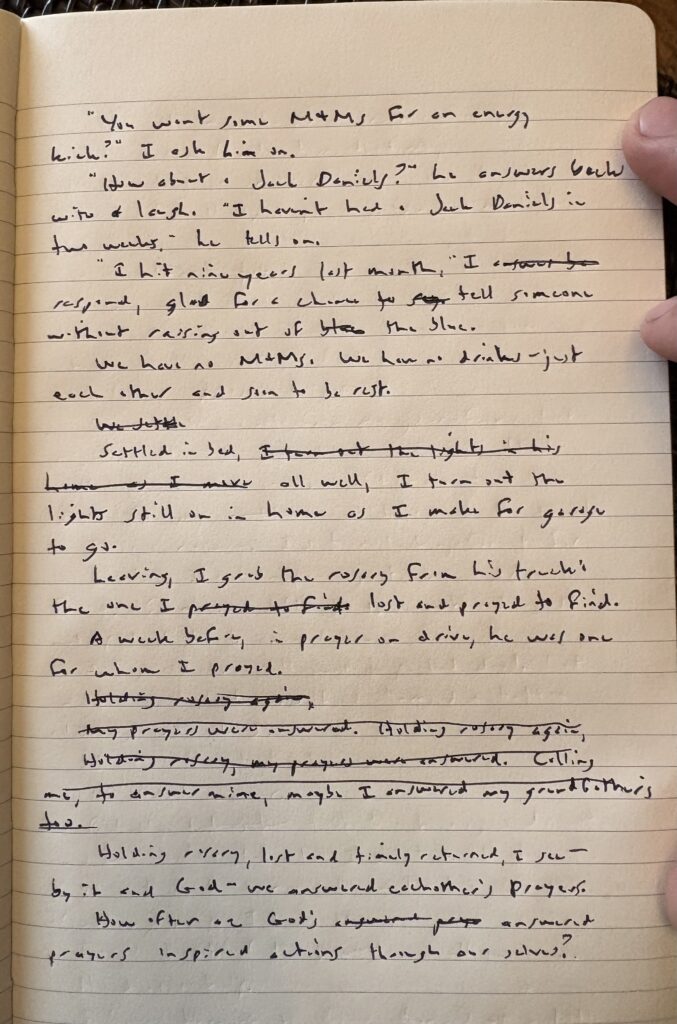 "You want some M+Ms for an energy
kick?" I ask him on.
"How about a Jack Daniels?" he answers back
with a laugh. "I haven't had a Jack Daniels in
two weeks," he tells on.
"I hit nine years last month," I answer be
respond, glad for a chance to say tell someone
without raising out of blue the blue.
We have no M+Ms. We have no drinks – just
each other and soon to be rest.
We settle
Settled in bed, I turn out the lights in his
home as I make all well, I turn out the
lights still on in home as I make for garage
to go.
Leaving, I grab the rosary from his truck:
the one I prayed to find lost and prayed to find.
A week before, in prayer on drive, he was one
for whom I prayed.
Holding rosary again,
My prayers were answered. Holding rosary again,
Holding rosary, my prayers were answered. Calling
me, to answer mine, maybe I answered my grandfather's
too.
Holding rosary, lost and timely returned, I see –
by it and God – we answered eachother's prayers.
How often are God's answered
prayers inspired actions through our selves?